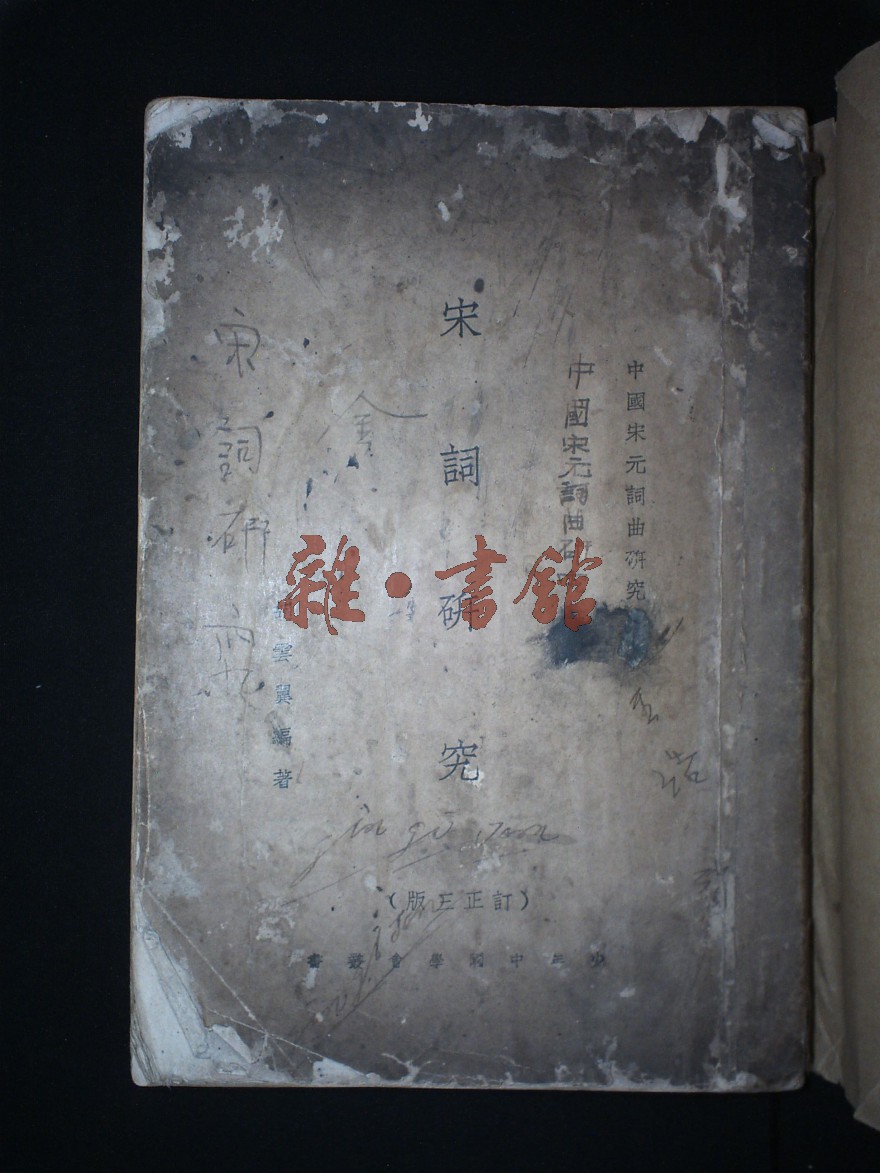 中國宋元詞曲研究
中國宋元詞曲研
宋詞研究
雲翼編著
宋詞研究
金
雜·書館
(訂正三版)
少年中國學會叢書